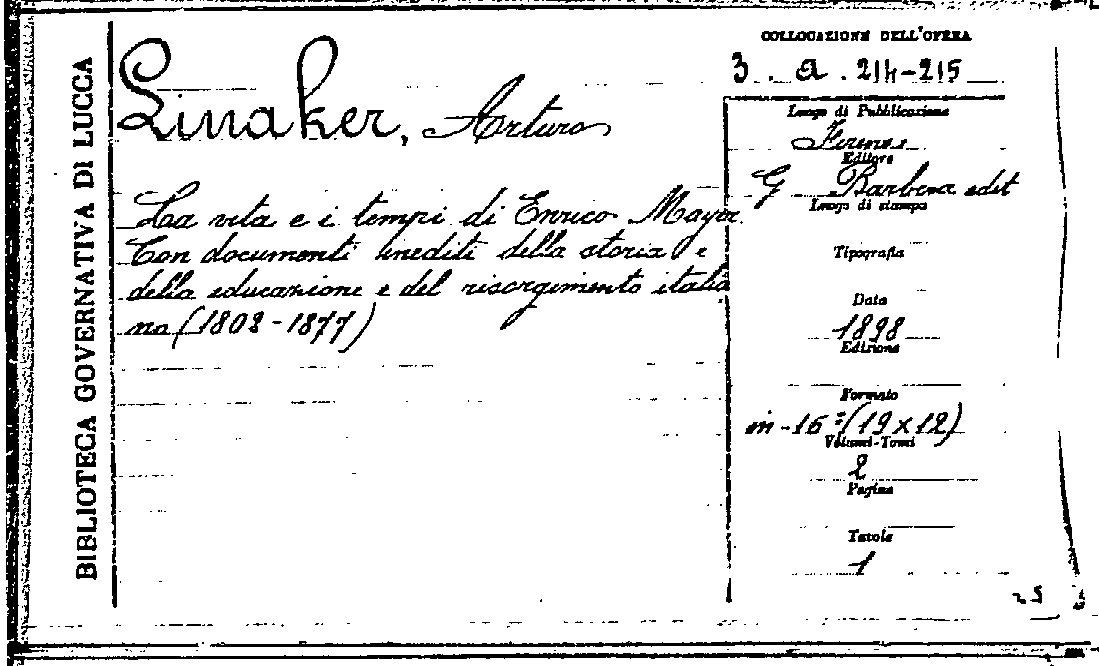 BIBLIOTECA GOVERNATIVA DI LUCCA
Linaker, Arturo
La vita e i tempi di Enrico Mayer.
Con documenti inediti della storia e
della educazione e del risorgimento italia
no (1802-1877)
COLLOCAZIONE DELL'OPERA
3. a. 214-215
Luogo di Pubblicazione
Firenze
Editore
G Barbera edit
Luogo di stampa
Tipografia
Data
1898
Edizione
Formato
in-16º (19x12)
Volumi-Tomi
2
Pagine
Tavole
1